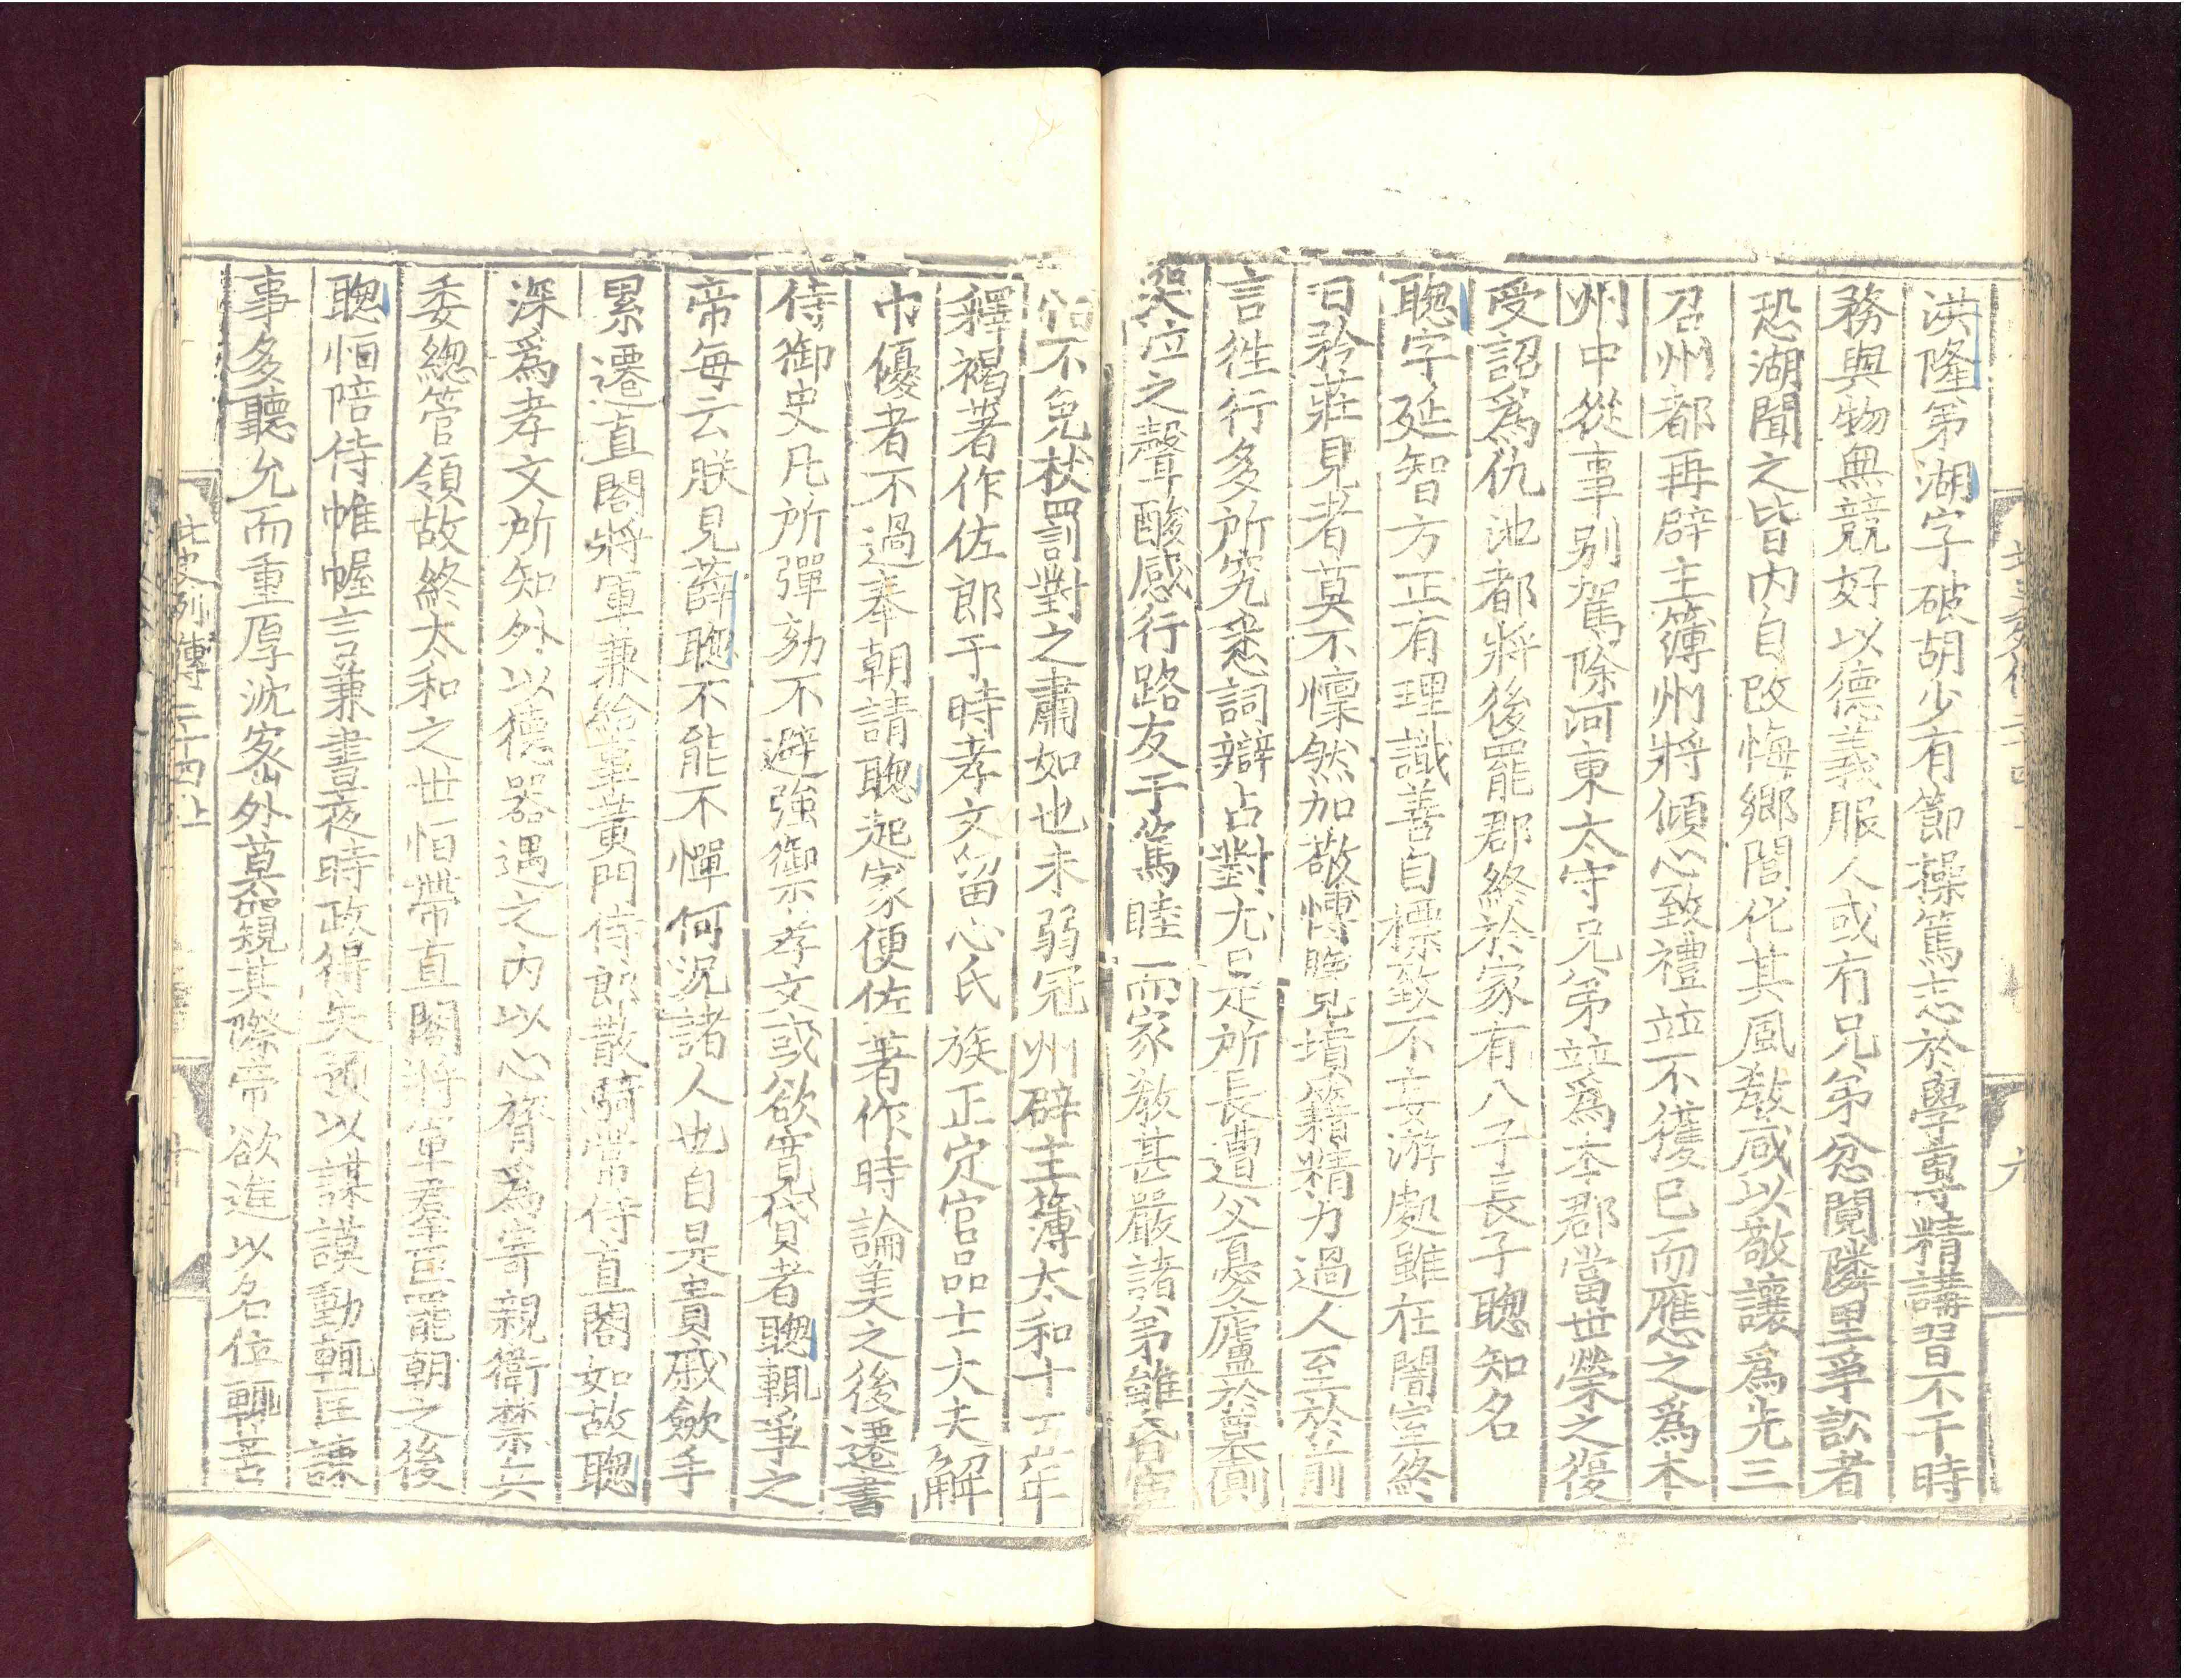 洪隆弟湖字破胡少有節操篤志於學專精講習不干時
務與物無競好以德義服人或有兄弟忿鬩隣里爭訟者
恐湖聞之皆內自改悔鄉閭化其風敎咸以敬讓爲先三
召州都再辟主簿州將傾心致禮並不獲已而應之爲本
州中從事別駕除河東太守兄弟並爲本郡當世榮之復
受詔爲仇池都將後罷郡終於家有八子長子聰知名
聰字延智方正有理識善自標致不妄游處雖在闇室終
日矜莊見者莫不懍然加敬博覽墳籍精力過人至於前
言往行多所究悉詞辯占對尤是所長遭父憂廬於墓側
哭泣之聲酸感行路友于篤睦而家敎甚嚴諸弟雖昏宦
恒不免杖罰對之肅如也未弱冠州辟主簿太和十五年
釋褐著作佐郎于時孝文留心氏族正定官品士大夫解
巾優者不過奉朝請聰起家便佐著作時論美之後遷書
侍御史凡所彈劾不避強禦孝文或欲寬貸者聰輒爭之
帝每云朕見薛聰不能不憚何況諸人也自是貴戚歛手
累遷直閤將軍兼給事黃門侍郎散騎常侍直閤如故聰
深爲孝文所知外以德器遇之內以心膂爲寄親衛禁兵
委總管領故終太和之世恒帶直閤將軍羣臣罷朝之後
聰恒陪侍帷幄言兼晝夜時政得失預以謀謨動輒匡諫
事多聽允而重厚沈密外莫窺其際帝欲進以名位輒苦
北史列傳二十四上